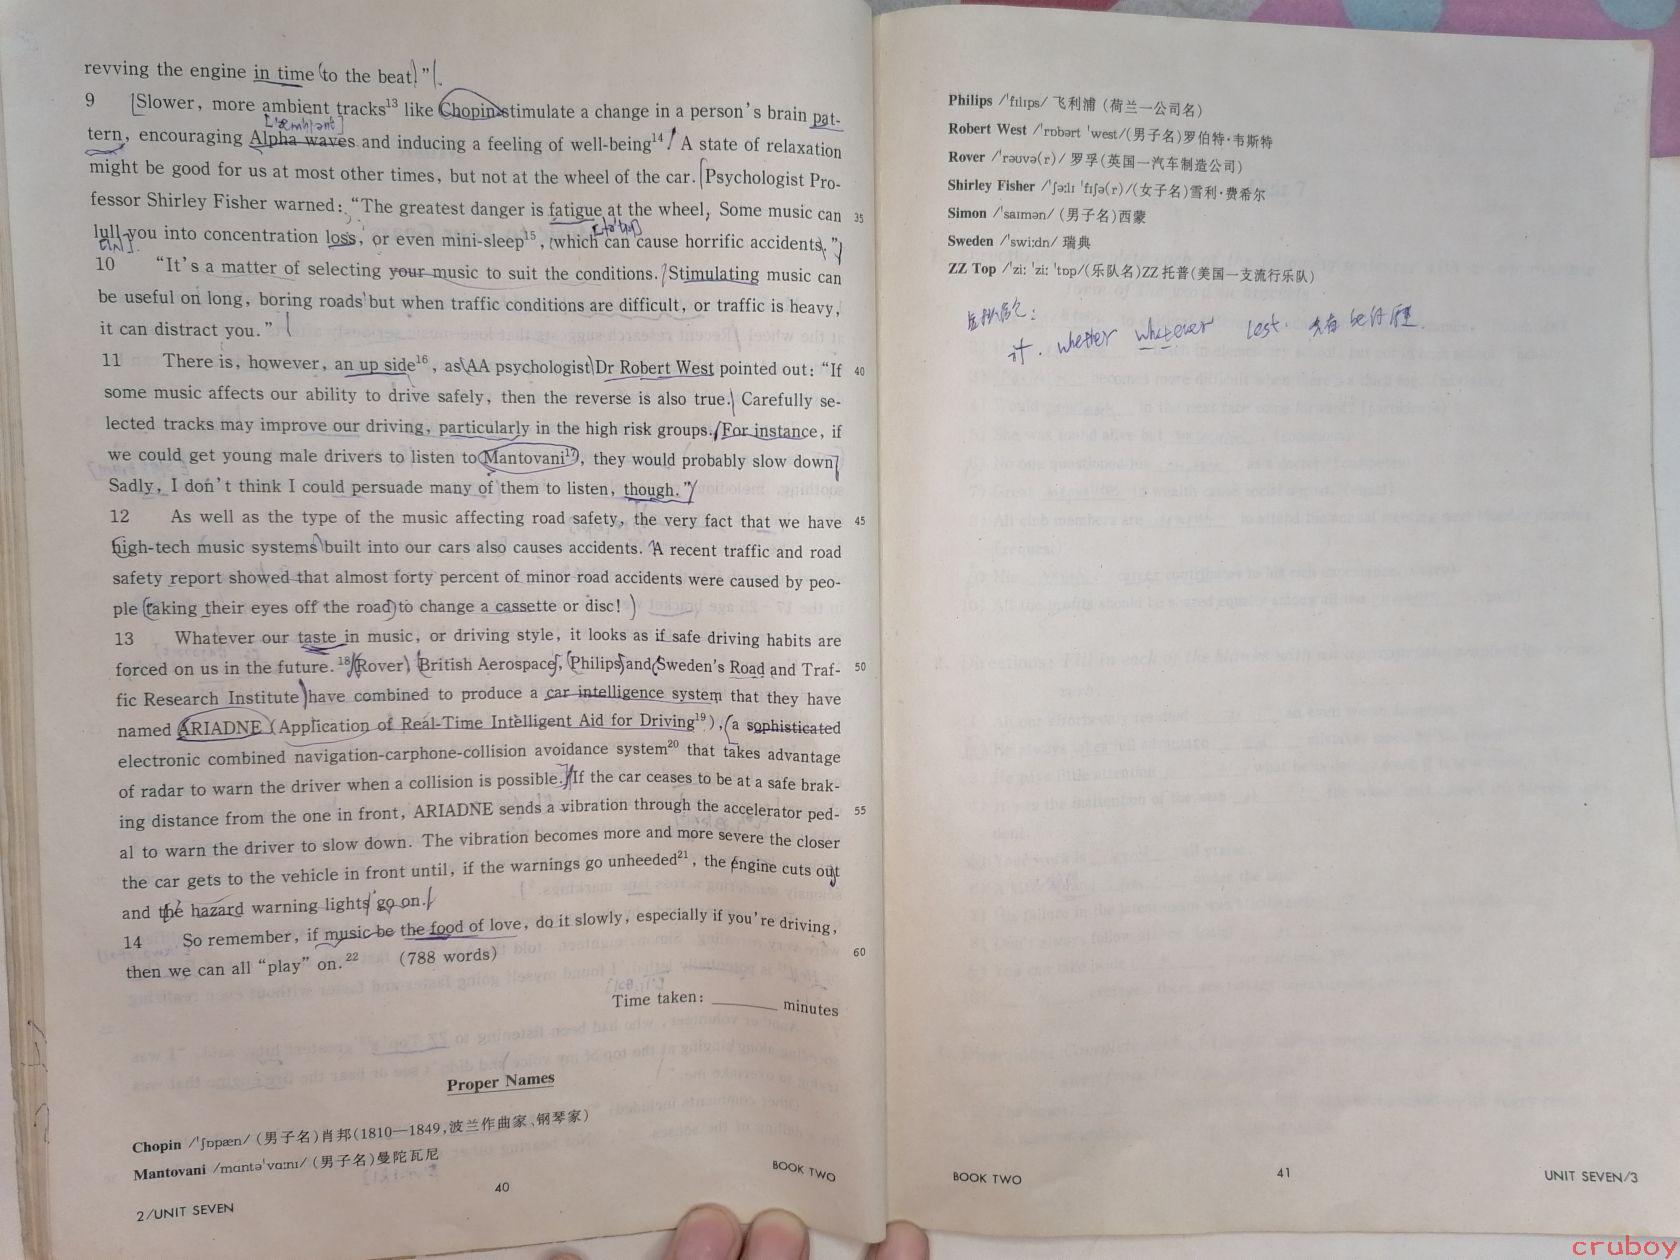 revving the engine in time to the beat!"
9 Slower, more ambient tracks13 like Chopin stimulate a change in a person's brain pat-
['æmbiənt]
tern, encouraging Alpha waves and inducing a feeling of well-being14! A state of relaxation
might be good for us at most other times, but not at the wheel of the car. Psychologist Pro-
fessor Shirley Fisher warned: "The greatest danger is fatigue at the wheel, Some music can 35
lull you into concentration loss, or even mini-sleep15, which can cause horrific accidents."
10 "It's a matter of selecting your music to suit the conditions. Stimulating music can
be useful on long, boring roads but when traffic conditions are difficult, or traffic is heavy,
it can distract you."
11 There is, however, an up side16, as AA psychologist Dr Robert West pointed out: "If 40
some music affects our ability to drive safely, then the reverse is also true. Carefully se-
lected tracks may improve our driving, particularly in the high risk groups. For instance, if
we could get young male drivers to listen to Mantovani17, they would probably slow down.
Sadly, I don't think I could persuade many of them to listen, though."
12 As well as the type of the music affecting road safety, the very fact that we have 45
high-tech music systems built into our cars also causes accidents. A recent traffic and road
safety report showed that almost forty percent of minor road accidents were caused by peo-
ple taking their eyes off the road to change a cassette or disc!
13 Whatever our taste in music, or driving style, it looks as if safe driving habits are
forced on us in the future.18 Rover, British Aerospace, Philips and Sweden's Road and Traf- 50
fic Research Institute have combined to produce a car intelligence system that they have
named ARIADNE (Application of Real-Time Intelligent Aid for Driving19), a sophisticated
electronic combined navigation-carphone-collision avoidance system20 that takes advantage
of radar to warn the driver when a collision is possible. If the car ceases to be at a safe brak-
ing distance from the one in front, ARIADNE sends a vibration through the accelerator ped- 55
al to warn the driver to slow down. The vibration becomes more and more severe the closer
the car gets to the vehicle in front until, if the warnings go unheeded21, the engine cuts out
and the hazard warning lights go on.
14 So remember, if music be the food of love, do it slowly, especially if you're driving,
then we can all "play" on.22 (788 words) 60
Time taken: ______ minutes
Proper Names
Chopin /'ʃɒpæn/ (男子名)肖邦(1810—1849,波兰作曲家、钢琴家)
Mantovani /mɑntə'vɑːnɪ/ (男子名)曼陀瓦尼
BOOK TWO
40
2/UNIT SEVEN
Philips /'fɪlɪps/ 飞利浦 (荷兰一公司名)
Robert West /'rɒbərt 'west/(男子名)罗伯特·韦斯特
Rover /'rəʊvə(r)/ 罗孚(英国一汽车制造公司)
Shirley Fisher /'ʃəːlɪ 'fɪʃə(r)/(女子名)雪利·费希尔
Simon /'saɪmən/ (男子名)西蒙
Sweden /'swiːdn/ 瑞典
ZZ Top /'ziː 'ziː 'tɒp/(乐队名)ZZ托普(美国一支流行乐队)
if. whether whatever lest.
BOOK TWO
41
UNIT SEVEN/3
cruboy